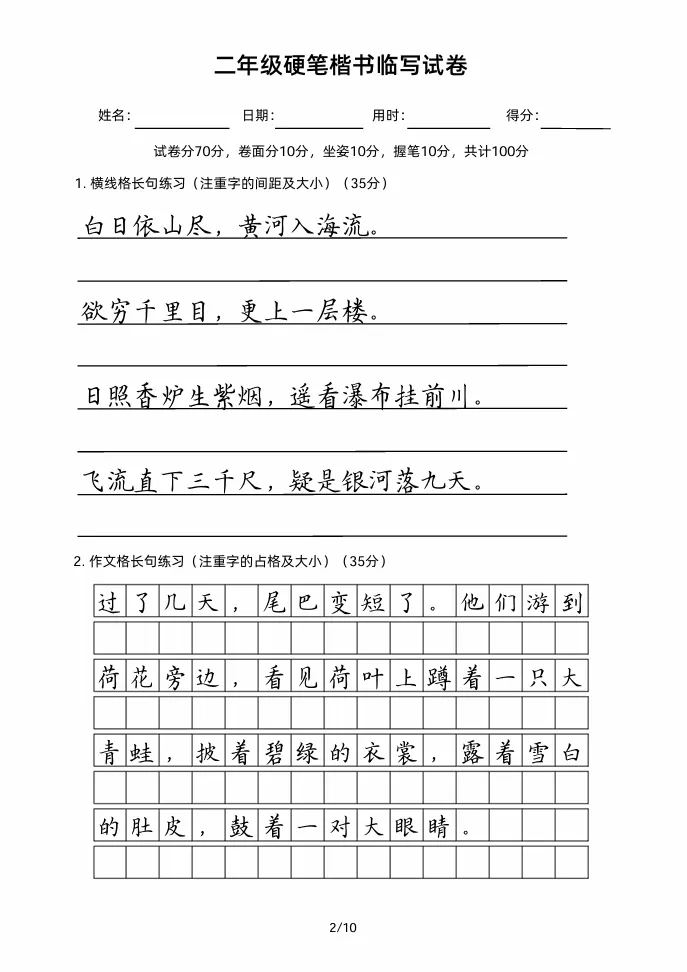 二年级硬笔楷书临写试卷
姓名： 日期： 用时： 得分：
试卷分70分，卷面分10分，坐姿10分，握笔10分，共计100分
1. 横线格长句练习（注重字的间距及大小）（35分）
白日依山尽，黄河入海流。
欲穷千里目，更上一层楼。
日照香炉生紫烟，遥看瀑布挂前川。
飞流直下三千尺，疑是银河落九天。
2. 作文格长句练习（注重字的占格及大小）（35分）
过了几天，尾巴变短了。他们游到
荷花旁边，看见荷叶上蹲着一只大
青蛙，披着碧绿的衣裳，露着雪白
的肚皮，鼓着一对大眼睛。
2/10